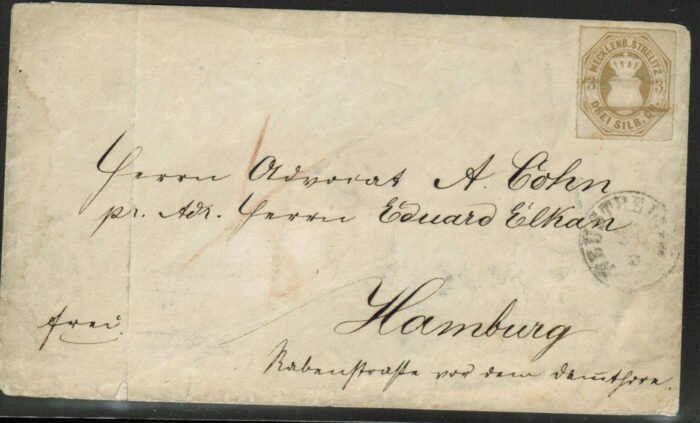 MECKLENB. STRELITZ
3 3
DREI SILB. GR.
Herrn Advocat A. Cohn
pr. Adr. Herrn Eduard Elkan
NEUSTREL
Hamburg
frei.
Rabenstraße vor dem Dam̅thore.